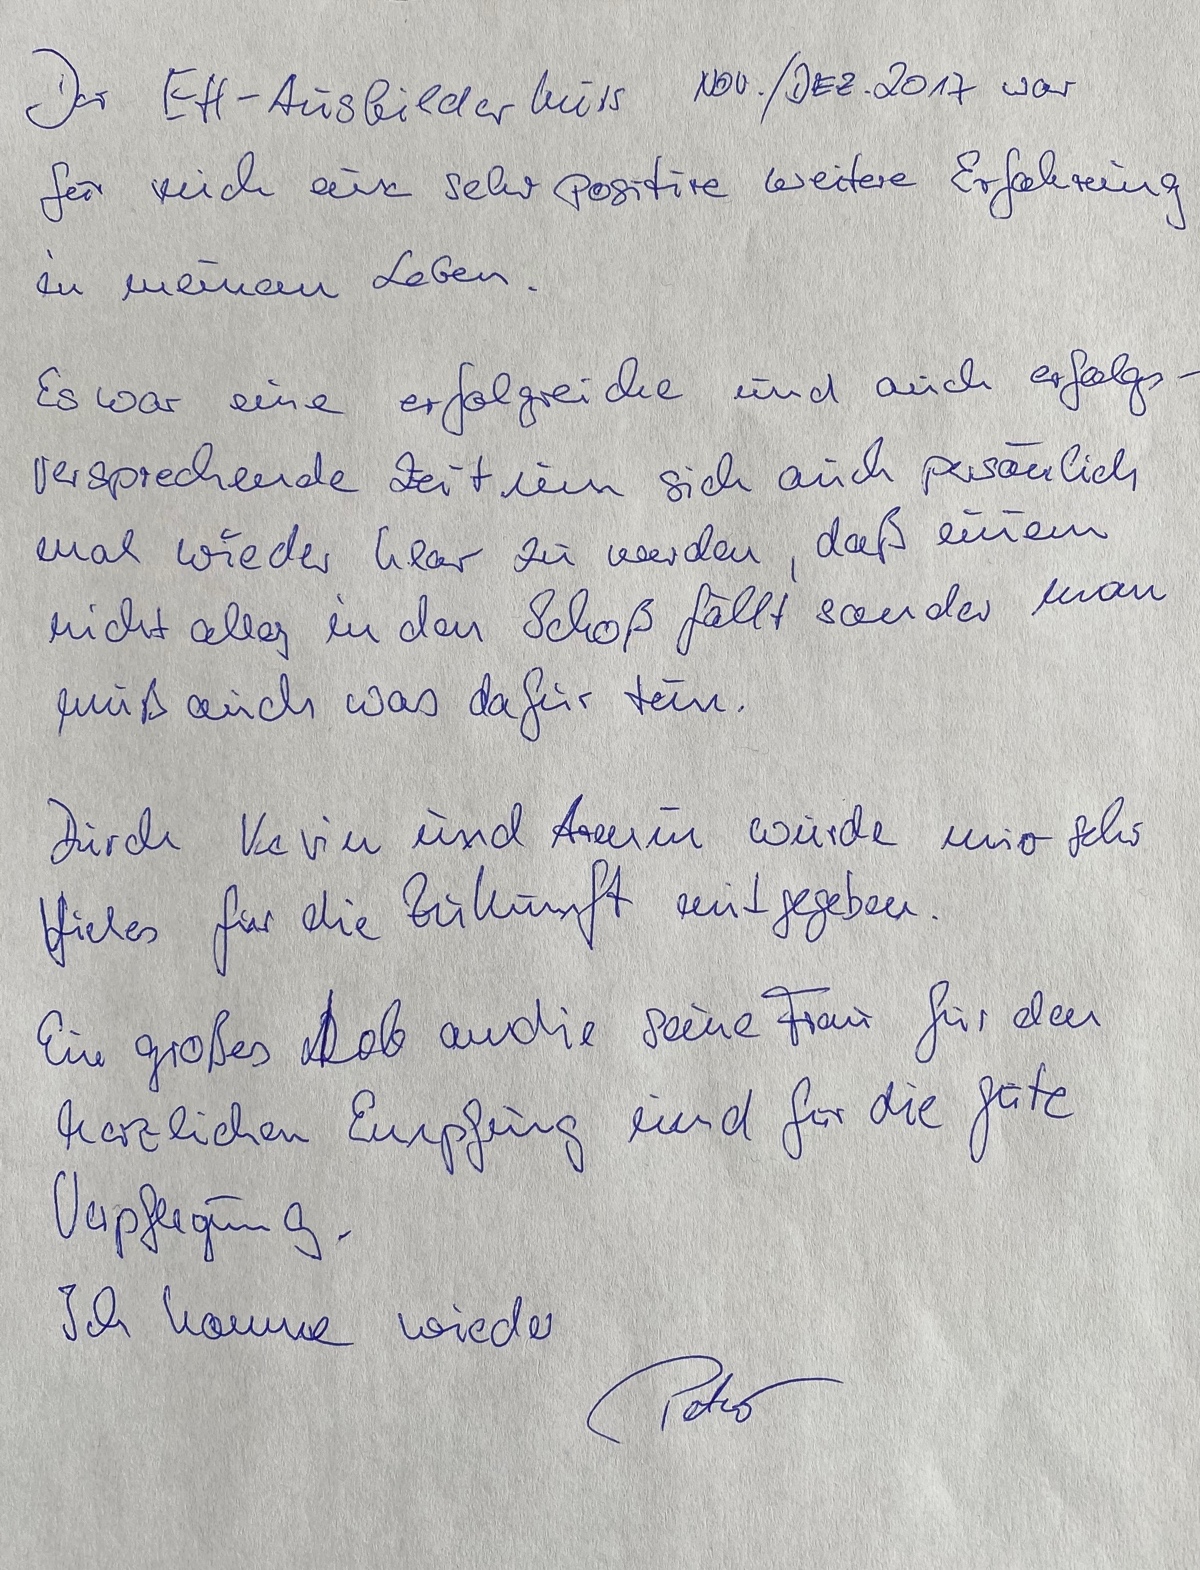 Der EH-Ausbilderkurs NOV./DEZ. 2017 war
für mich eine sehr positive weitere Erfahrung
in meinem Leben.
Es war eine erfolgreiche und auch erfolgs-
versprechende Zeit um sich auch persönlich
mal wieder klar zu werden, daß einem
nicht alles in den Schoß fällt sonder man
muß auch was dafür tun.
Durch Kevin und Armin wurde mir sehr
Vieles für die Zukunft mitgegeben.
Ein großes Lob an die seine Frau für den
herzlichen Empfang und für die gute
Verpflegung.
Ich komme wieder
Peter